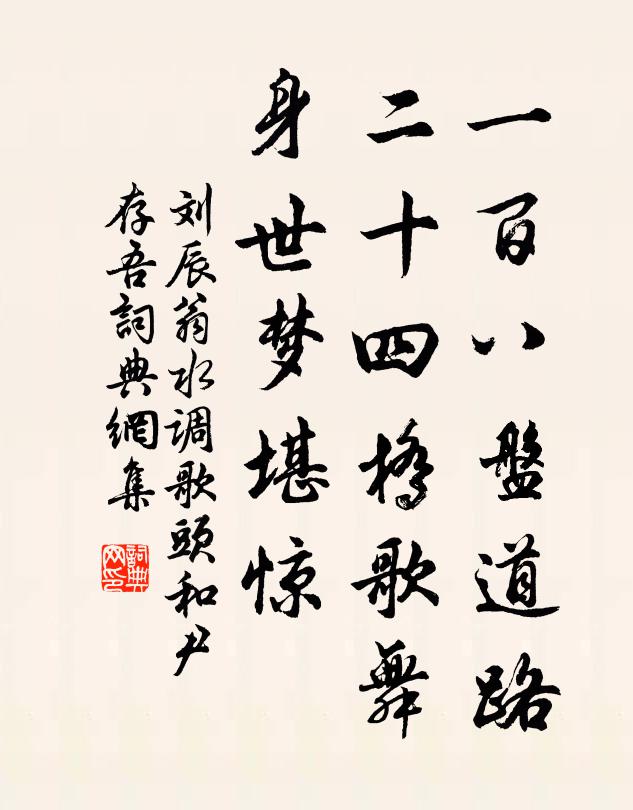 一百八盤道路
二十四橋歌舞
身世梦堪惊
刘辰翁水调歌頭和尹
存吾詞典網集
詞典
网印